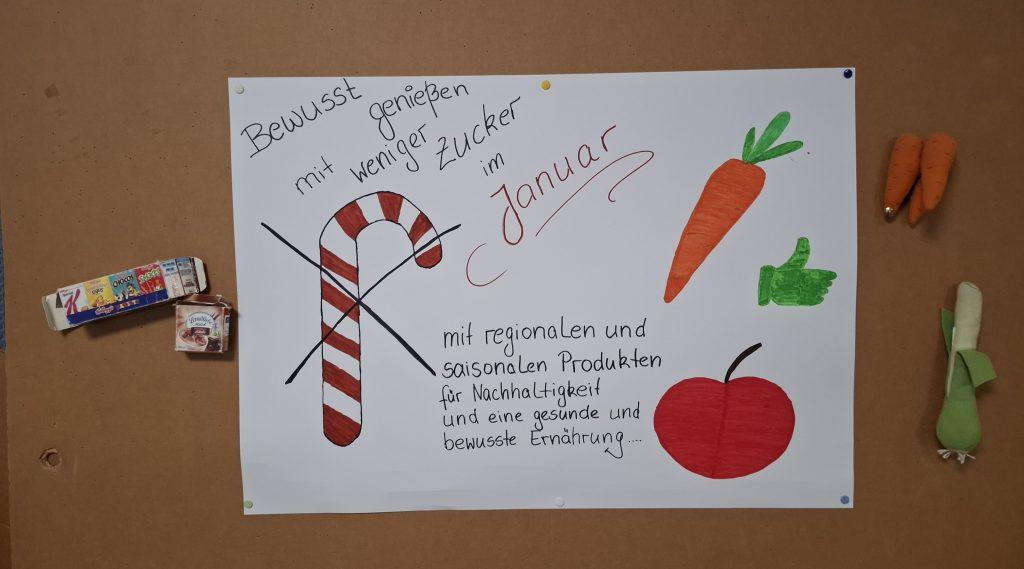 Bewusst genießen
mit weniger Zucker
im
Januar
mit regionalen und
saisonalen Produkten
für Nachhaltigkeit
und eine gesunde und
bewusste Ernährung....
K
CHOCOS
Landliebe